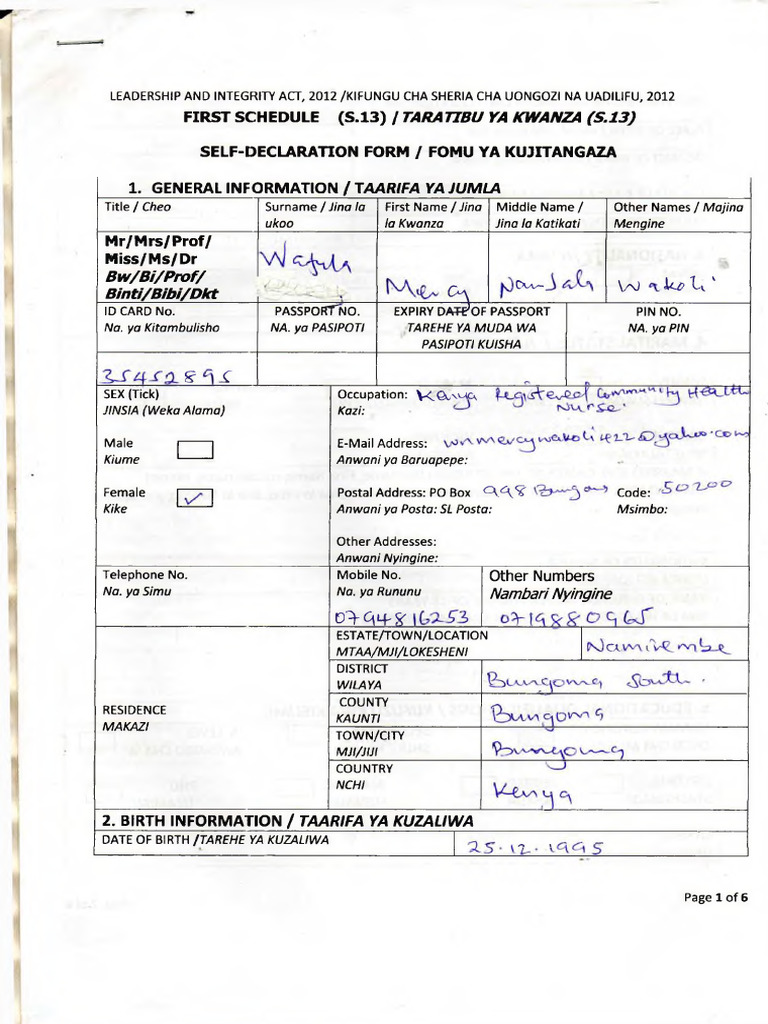 LEADERSHIP AND INTEGRITY ACT, 2012 /KIFUNGU CHA SHERIA CHA UONGOZI NA UADILIFU, 2012
FIRST SCHEDULE (S.13) / TARATIBU YA KWANZA (S.13)
SELF-DECLARATION FORM / FOMU YA KUJITANGAZA
1. GENERAL INFORMATION / TAARIFA YA JUMLA
Title / Cheo
Surname / Jina la ukoo
First Name / Jina la Kwanza
Middle Name / Jina la Katikati
Other Names / Majina Mengine
Mr/Mrs/Prof/
Miss/Ms/Dr
Bw/Bi/Prof/
Binti/Bibi/Dkt
Wafula
Mercy
Wakoli
ID CARD No.
Na. ya Kitambulisho
PASSPORT NO.
NA. ya PASIPOTI
EXPIRY DATE OF PASSPORT
TAREHE YA MUDA WA
PASIPOTI KUISHA
PIN NO.
NA. ya PIN
35452895
SEX (Tick)
JINSIA (Weka Alama)
Male
Kiume
Female
Kike
Occupation: Kenya Registered Community Health
Kazi: Nurse.
E-Mail Address: wnmercywakoli422@yahoo.com
Anwani ya Baruapepe:
Postal Address: PO Box 998 Bungoma Code: 50200
Anwani ya Posta: SL Posta: Msimbo:
Other Addresses:
Anwani Nyingine:
Telephone No.
Na. ya Simu
Mobile No.
Na. ya Rununu
0794816253
Other Numbers
Nambari Nyingine
0719880965
RESIDENCE
MAKAZI
ESTATE/TOWN/LOCATION
MTAA/MJI/LOKESHENI
Namirembe
DISTRICT
WILAYA
Bungoma South.
COUNTY
KAUNTI
Bungoma
TOWN/CITY
MJI/JIJI
Bungoma
COUNTRY
NCHI
Kenya
2. BIRTH INFORMATION / TAARIFA YA KUZALIWA
DATE OF BIRTH /TAREHE YA KUZALIWA
25.12.1995
Page 1 of 6